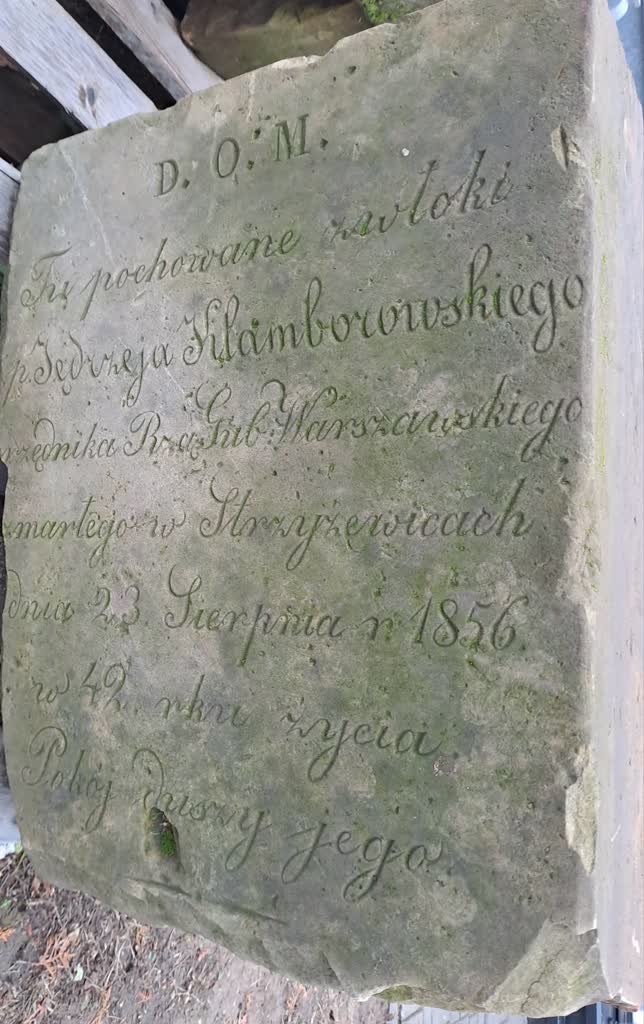 D. O. M.
Tu pochowane zwłoki
p. Jędrzeja Klamborowskiego
rzędnika Rzą Gub: Warszawskiego
zmarłego w Strzyżewicach
dnia 23. Sierpnia r 1856.
w 42. rku życia.
Pokój duszy jego.